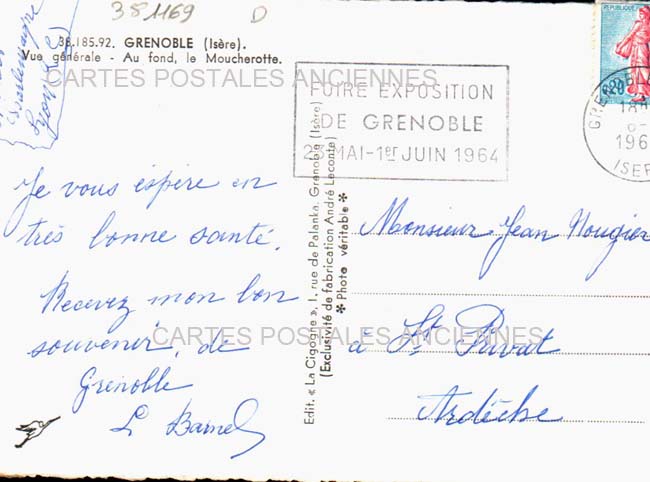 381169 D
38.185.92. GRENOBLE (Isère).
Vue générale - Au fond, le Moucherotte.
CARTES POSTALES ANCIENNES
Charlemagne
Je vous espère en
très bonne santé.
Recevez mon bon
souvenir, de
Grenoble
L Barnel
Edit. « La Cigogne », 1, rue de Palanka, Grenoble (Isère)
(Exclusivité de fabrication André Leconte)
* Photo véritable *
FOIRE EXPOSITION
DE GRENOBLE
MAI-1er JUIN 1964
REPUBLIQUE
0,20
GRENOBLE
18
196
ISER
Monsieur Jean Nougier
à St Privat
Ardèche
CARTES POSTALES ANCIENNES